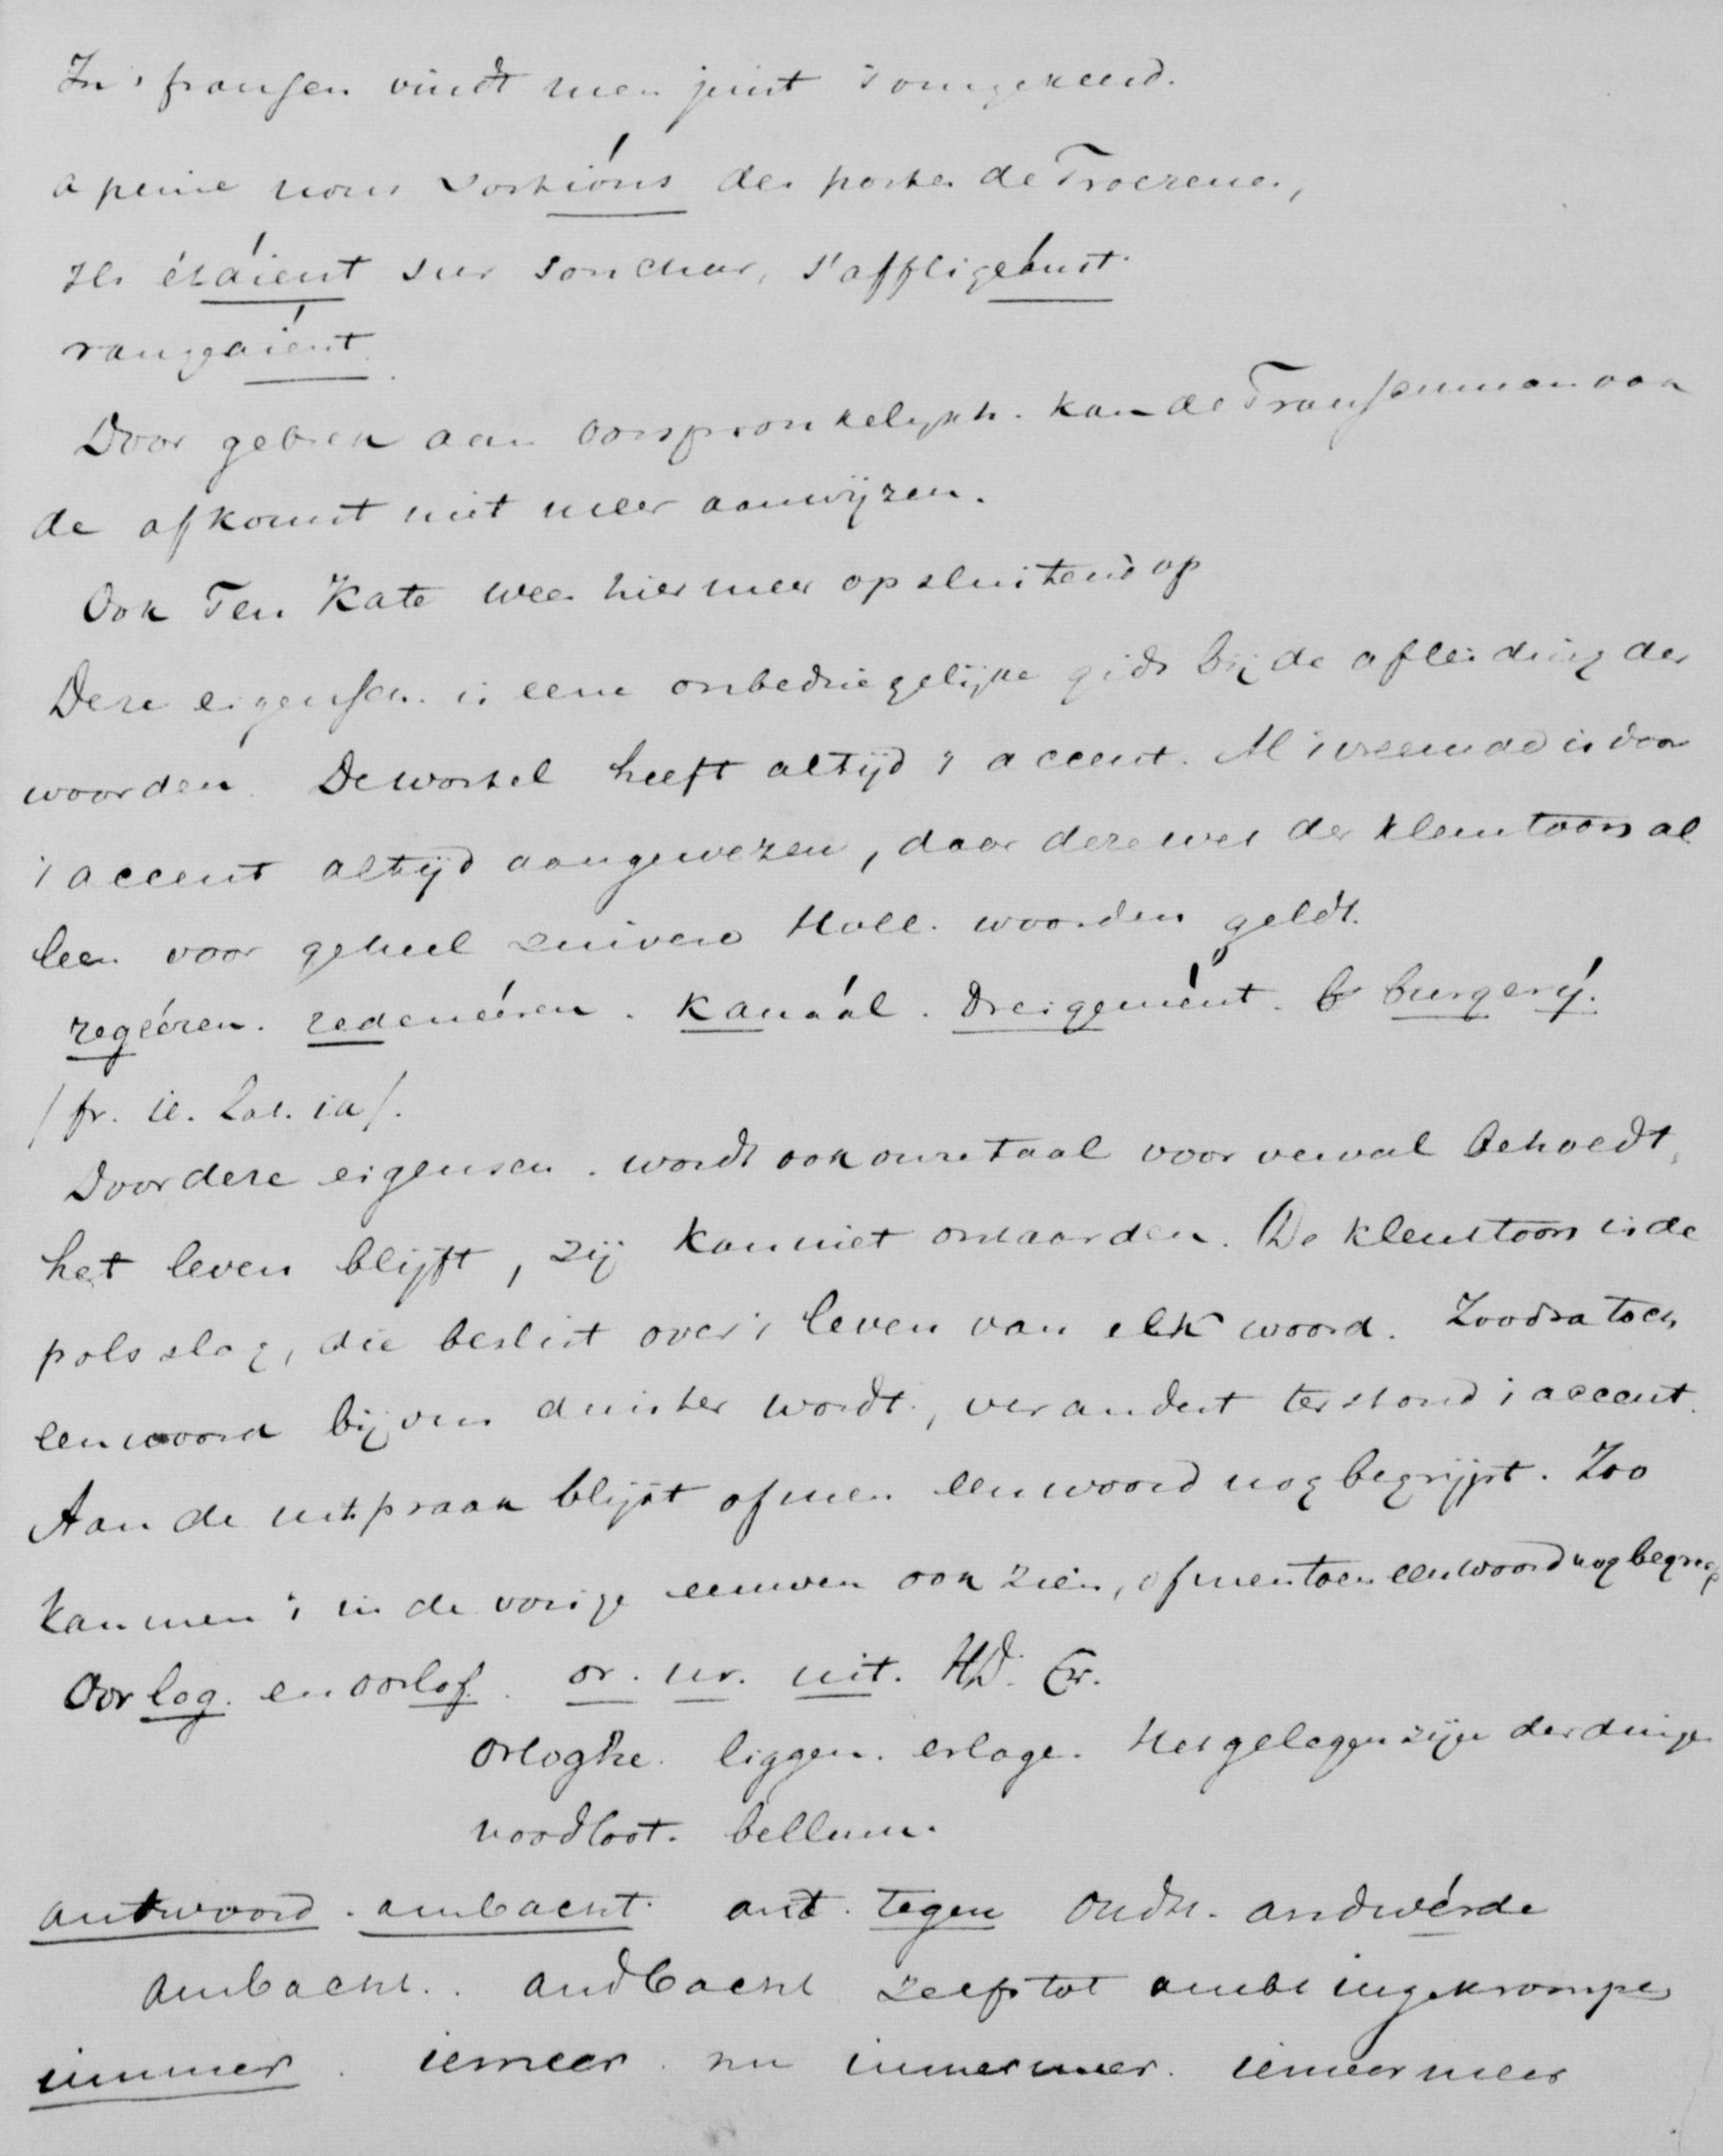 In 't fransch vindt men juist 't omgekeerd.
a peine nous sortións des portes de Troezene,
Ils étáient sur son char, s'affligeáient
rangeáient.
Door gebrek aan oorspronkelijkh. kan de Franschman ook
de afkomst niet meer aanwijzen.
Ook Ten Kate wees hier meer opsluitend op
Deze eigensch. is eene onbedriegelijke gids bij de afleiding der
woorden. De wortel heeft altijd 't accent. Al 't vreemde is door
't accent altijd aangewezen, daar deze wet der klemtoon al
leen voor geheel zuivere Holl. woorden geldt.
regéeren. redenéeren. kanáal. Dreigemént. burgerý.
/ fr. ie. Lat. ia /.
Door deze eigensch. wordt ook onze taal voor verval behoedt,
het leven blijft, zij kan niet ontaarden. De klemtoon is de
polsslag, die beslist over 't leven van elk woord. Zoodra toch
een woord bij ons duister wordt, verandert terstond 't accent.
Aan de uitspraak blijkt of men een woord nog begrijpt. Zoo
kan men 't in de vorige eeuwen ook zien, of men toen een woord nog begreep
Oorlog. en oorlof. or. ur. uit. HD. Er.
orloghe. liggen. erlage. Het gelegen zijn der dingen
noodloot. bellum.
antwoord. ambacht. ant. tegen Oudh. andwérde
ambacht.. andbacht zelfs tot ambt ingekrompen
immer. iemeer. nu immermeer. iemeermeer